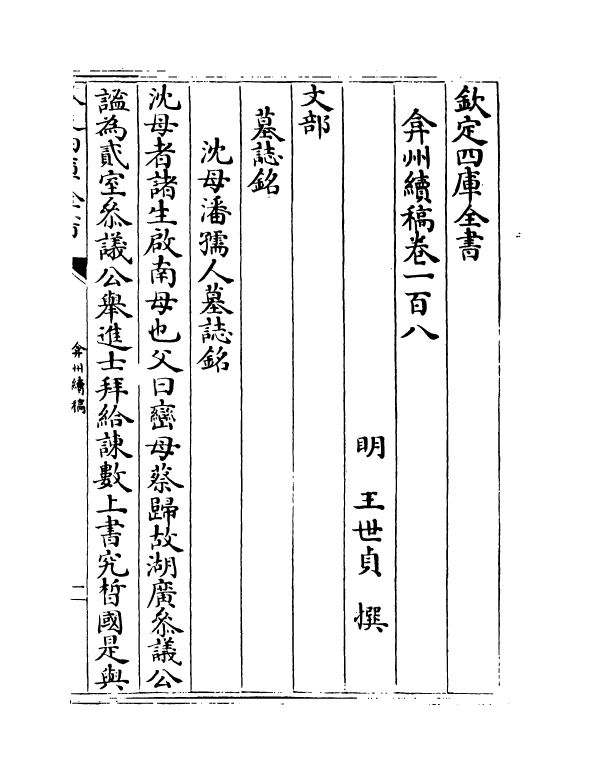 欽定四庫全書
弇州續稿卷一百八
明 王世貞 撰
文部
墓誌銘
沈母潘孺人墓誌銘
沈母者諸生啟南母也父曰巒母蔡歸故湖廣叅議公
謐為貳室叅議公舉進士拜給諫數上書究晳國是與
弇州續稿